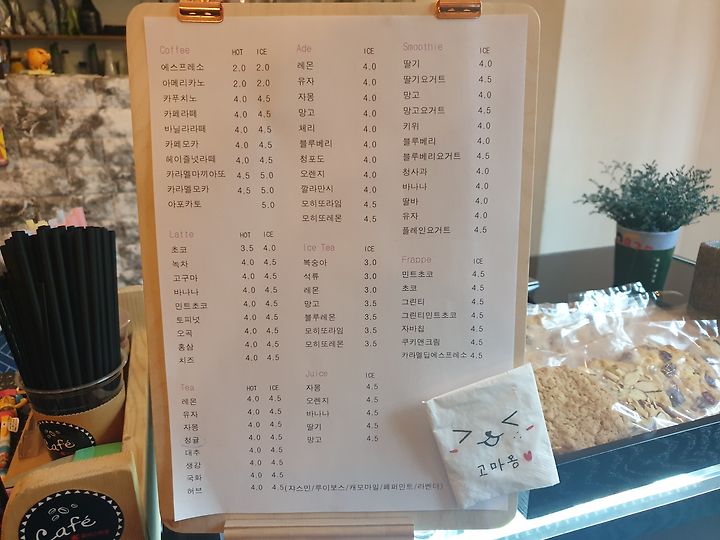 Coffee HOT ICE
에스프레소 2.0 2.0
아메리카노 2.0 2.0
카푸치노 4.0 4.5
카페라떼 4.0 4.5
바닐라라떼 4.0 4.5
카페모카 4.0 4.5
헤이즐넛라떼 4.0 4.5
카라멜마끼아또 4.5 5.0
카라멜모카 4.5 5.0
아포카토 5.0
Latte HOT ICE
초코 3.5 4.0
녹차 4.0 4.5
고구마 4.0 4.5
바나나 4.0 4.5
민트초코 4.0 4.5
토피넛 4.0 4.5
오곡 4.0 4.5
홍삼 4.0 4.5
치즈 4.0 4.5
Tea HOT ICE
레몬 4.0 4.5
유자 4.0 4.5
자몽 4.0 4.5
청귤 4.0 4.5
대추 4.0 4.5
생강 4.0 4.5
국화 4.0 4.5
허브 4.0 4.5(쟈스민/루이보스/캐모마일/페퍼민트/라벤더)
Ade ICE
레몬 4.0
유자 4.0
자몽 4.0
망고 4.0
체리 4.0
블루베리 4.0
청포도 4.0
오렌지 4.0
깔라만시 4.0
모히또라임 4.5
모히또레몬 4.5
Ice Tea ICE
복숭아 3.0
석류 3.0
레몬 3.0
망고 3.5
블루레몬 3.5
모히또라임 3.5
모히또레몬 3.5
Juice ICE
자몽 4.5
오렌지 4.5
바나나 4.5
딸기 4.5
망고 4.5
Smoothie ICE
딸기 4.0
딸기요거트 4.5
망고 4.0
망고요거트 4.5
키위 4.0
블루베리 4.0
블루베리요거트 4.5
청사과 4.0
바나나 4.0
딸바 4.0
유자 4.0
플레인요거트 4.5
Frappe ICE
민트초코 4.5
초코 4.5
그린티 4.5
그린티민트초코 4.5
자바칩 4.5
쿠키앤크림 4.5
카라멜딥에스프레소 4.5
고마옹
Café
Café